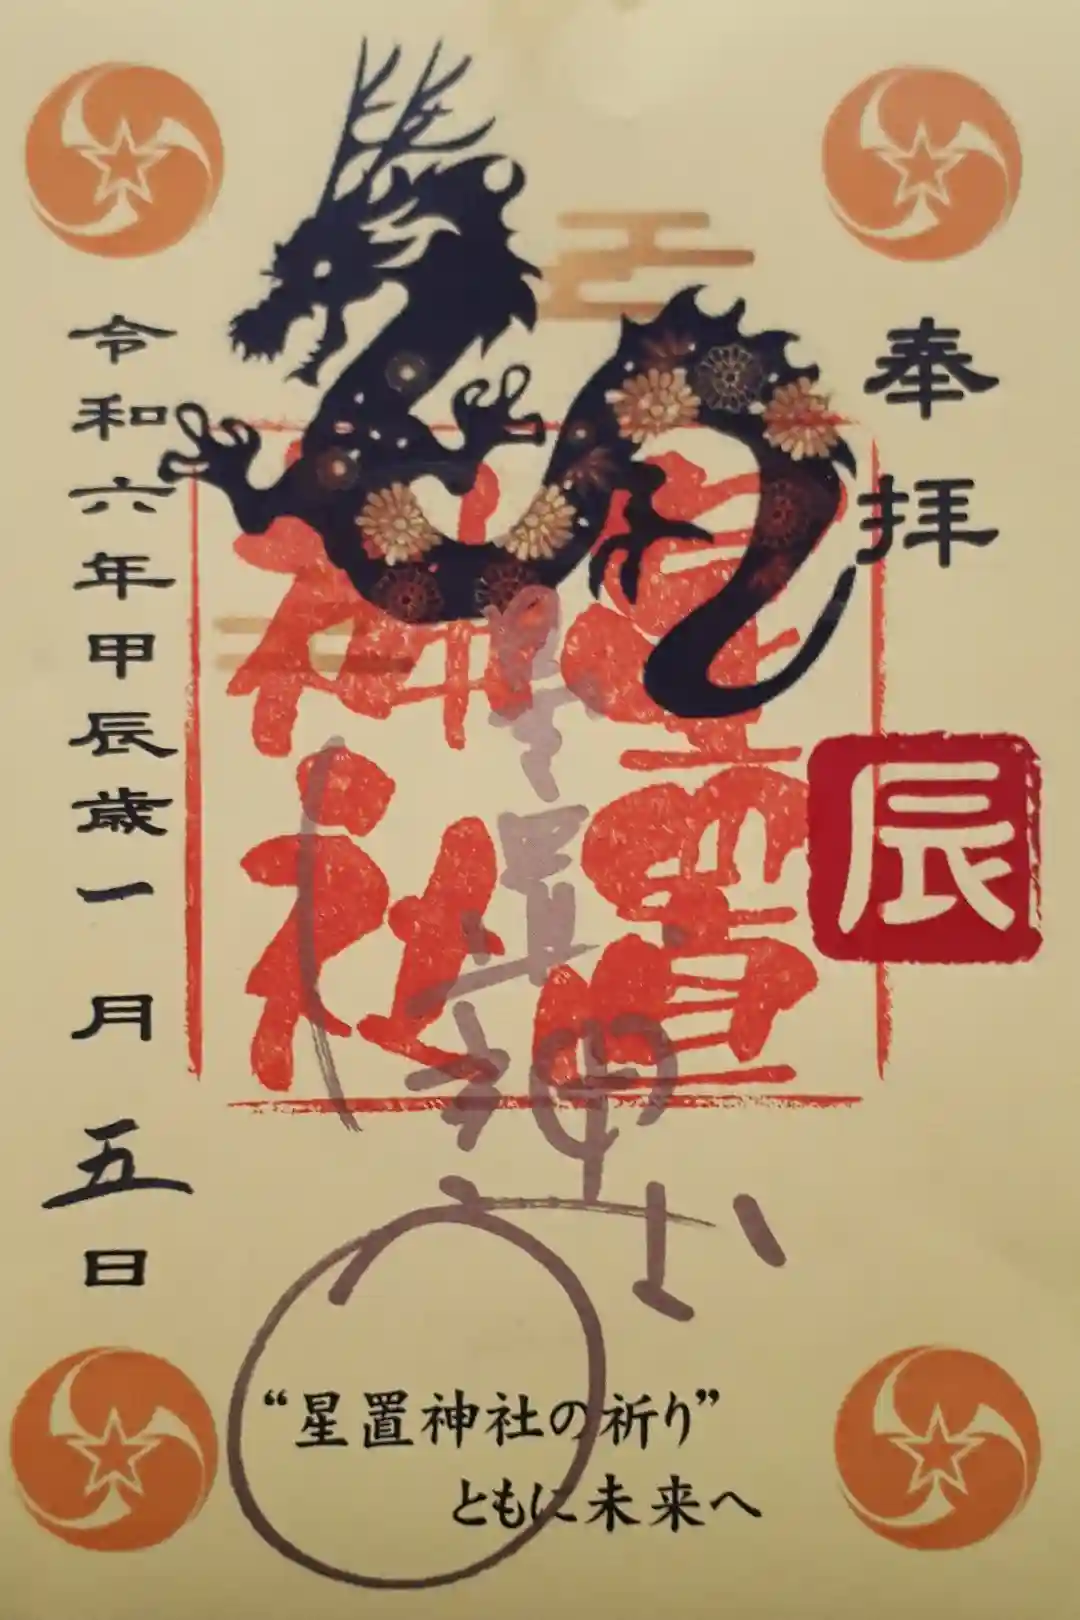 奉拝
辰
星置
神社
星置神社
令和六年甲辰歳一月五日
“星置神社の祈り”
ともに未来へ